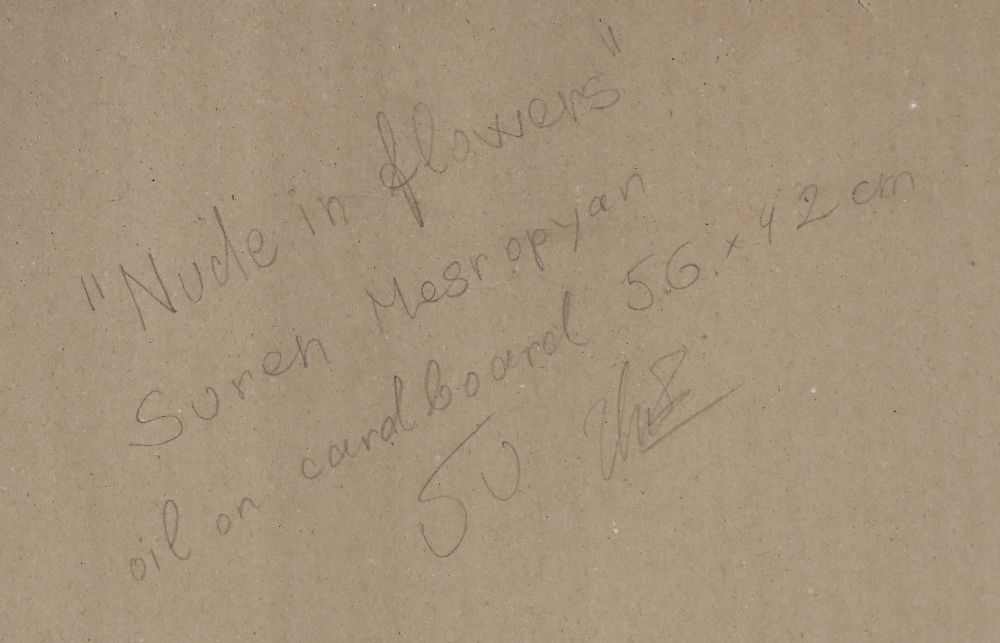 "Nude in flowers"
Suren Mesropyan
oil on cardboard 56 × 42 cm